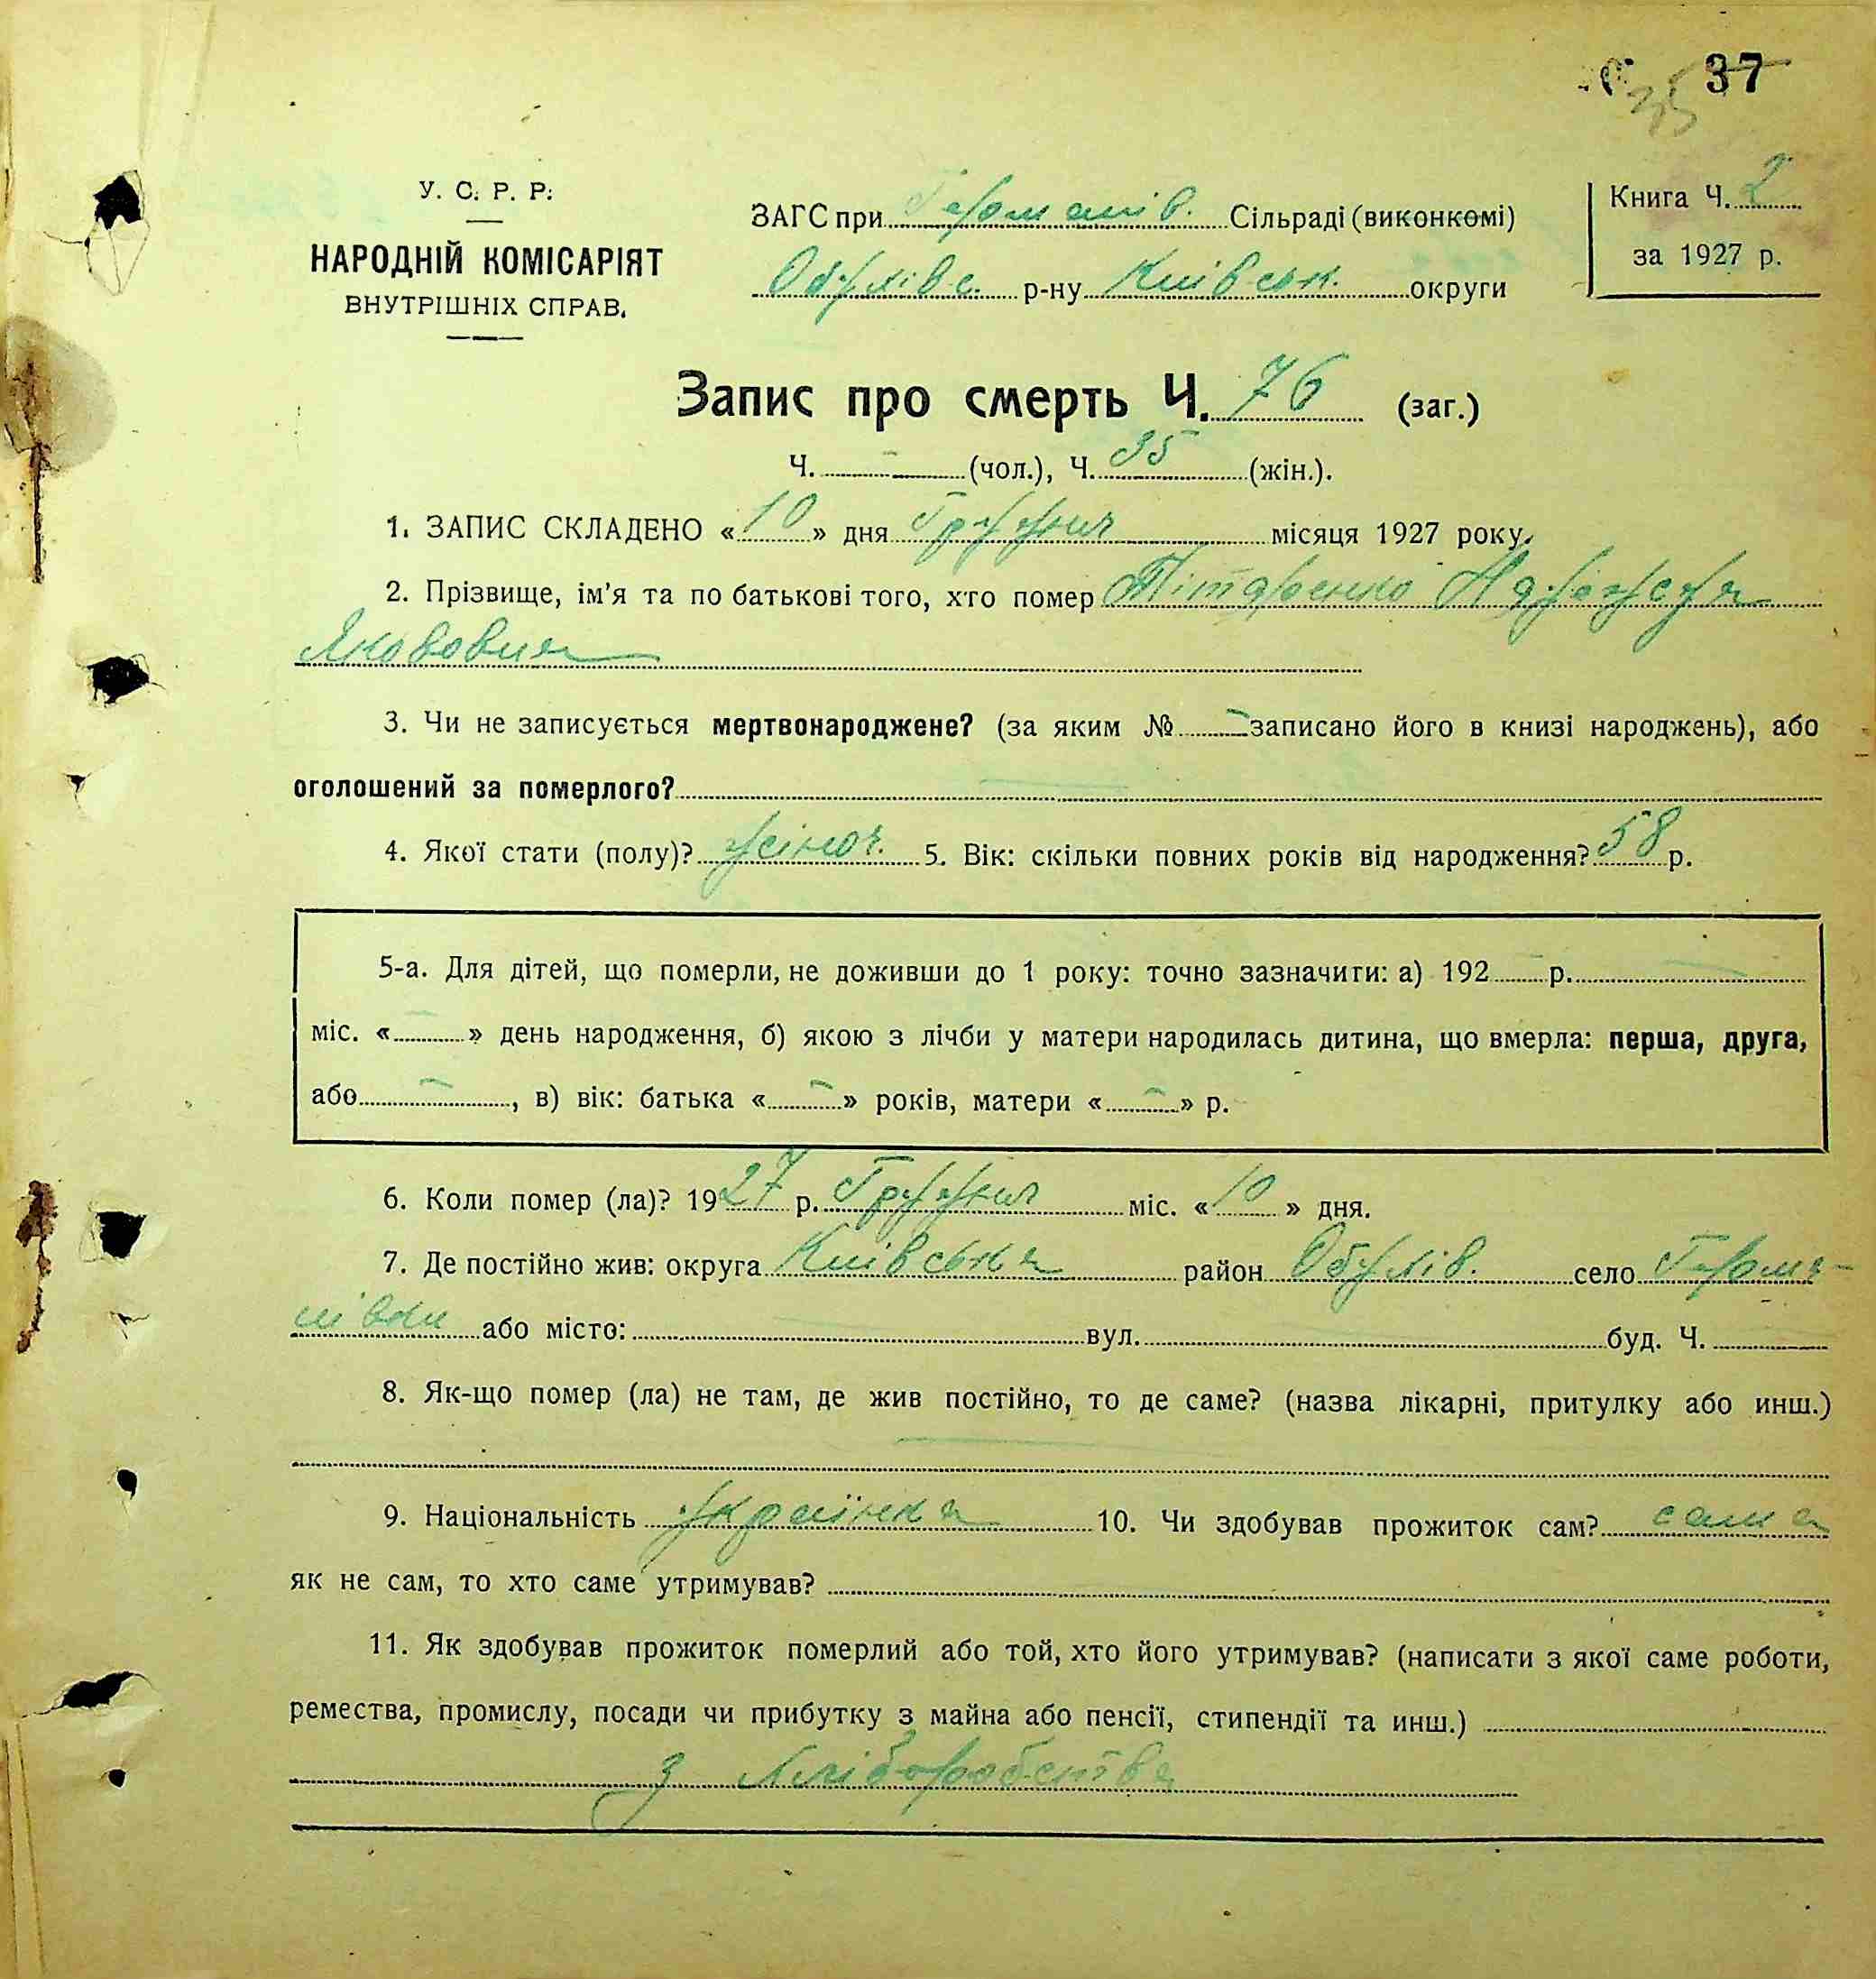 37
35
У. С. Р. Р.
НАРОДНІЙ КОМІСАРІЯТ
ВНУТРІШНІХ СПРАВ.
ЗАГС при Германів. Сільраді (виконкомі)
Обухівс. р-ну Київськ. округи
Книга Ч. 2
за 1927 р.
Запис про смерть Ч. 76 (заг.)
Ч. - (чол.), Ч. 35 (жін.).
1. ЗАПИС СКЛАДЕНО «10» дня Грудня місяця 1927 року.
2. Прізвище, ім'я та по батькові того, хто помер Тітаренко
Якововна
3. Чи не записується мертвонароджене? (за яким № - записано його в книзі народжень), або
оголошений за померлого? -
4. Якої стати (полу)? жіноч. 5. Вік: скільки повних років від народження? 58 р.
5-а. Для дітей, що померли, не доживши до 1 року: точно зазначити: а) 192 р. -
міс. « - » день народження, б) якою з лічби у матери народилась дитина, що вмерла: перша, друга,
або - , в) вік: батька « - » років, матери « - » р.
6. Коли помер (ла)? 1927 р. Грудня міс. «10» дня.
7. Де постійно жив: округа Київська район Обухів. село Герма-
нівки або місто: - вул. - буд. Ч. -
8. Як-що помер (ла) не там, де жив постійно, то де саме? (назва лікарні, притулку або инш.)
-
9. Національність українка 10. Чи здобував прожиток сам? сама
як не сам, то хто саме утримував?
11. Як здобував прожиток померлий або той, хто його утримував? (написати з якої саме роботи,
ремества, промислу, посади чи прибутку з майна або пенсії, стипендії та инш.)
з хліборобства